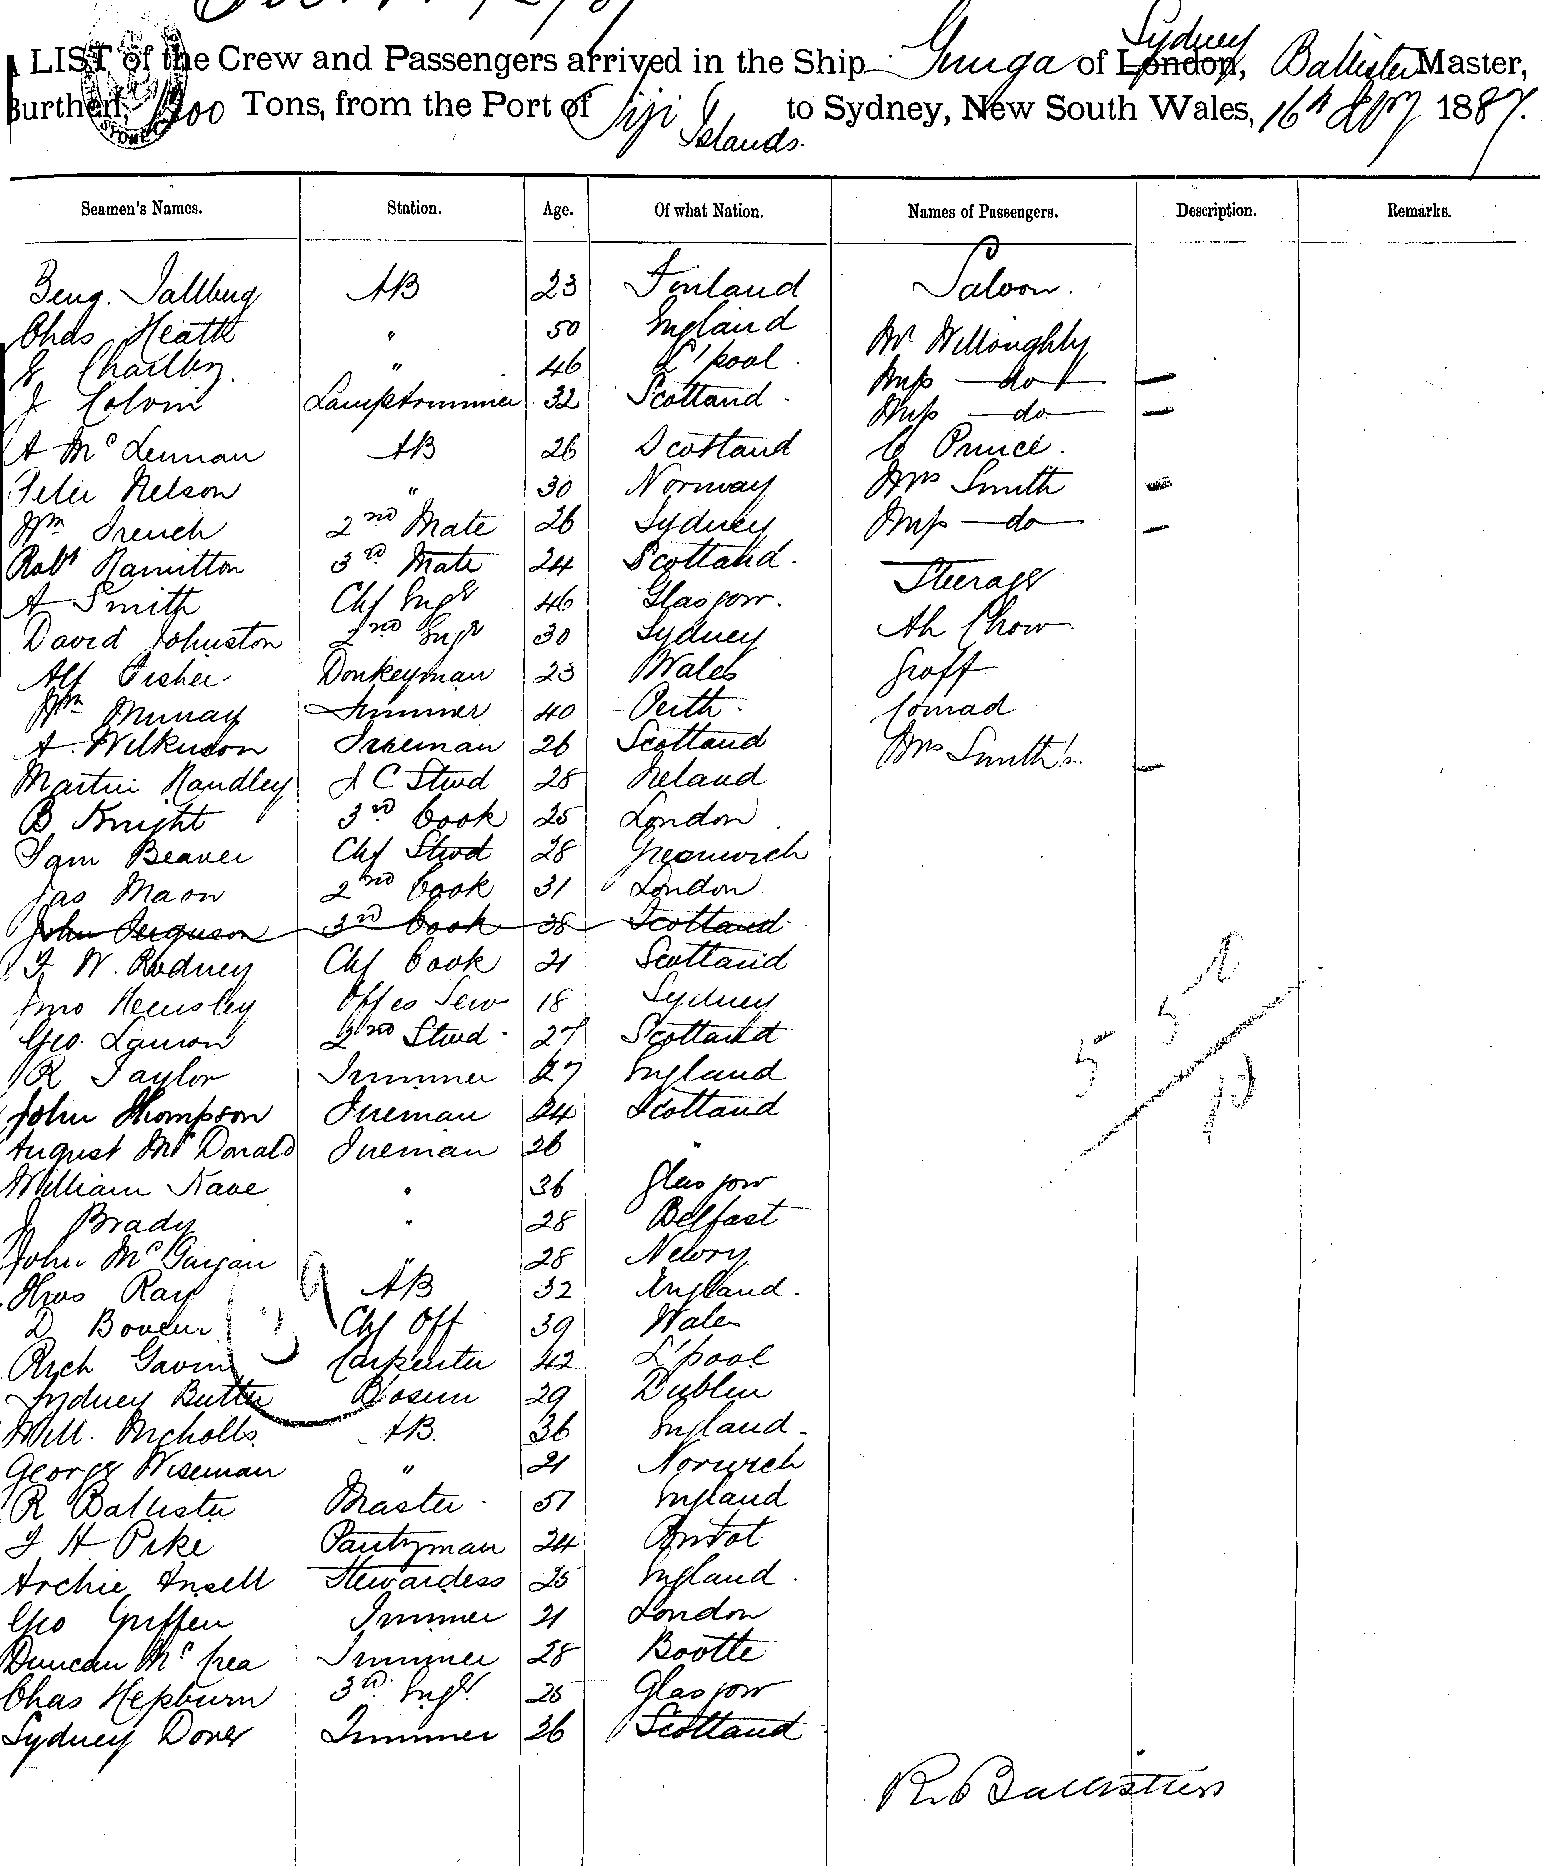 LIST of the Crew and Passengers arrived in the Ship Gunga of London, Sydney Ballister Master,
Burthen, 1200 Tons, from the Port of Fiji Islands. to Sydney, New South Wales, 16th 1887.
Seamen's Names. Station. Age. Of what Nation. Names of Passengers. Description. Remarks.
AB 23 Finland Saloon.
Chas Heath " 50 England Mr Willoughby
" 46 L'pool. Miss —do—
J Colvin Lamptrimmer 32 Scotland. Miss —do—
A McLennan AB 26 Scotland C Prince.
Peter Nelson " 30 Norway Mrs Smith
Wm French 2nd Mate 26 Sydney Miss —do—
Robt Hamilton 3rd Mate 24 Scotland. Steerage
A Smith Chf Engr 46 Glasgow.
David Johnston 2nd Engr 30 Sydney Ah Chow
Alf Fisher Donkeyman 23 Wales Groff
Wm Murray Trimmer 40 Perth. Conrad
A. Wilkinson Fireman 26 Scotland Mrs Smith's
Martin Handley F C Stwd 28 Ireland
B Knight 3rd Cook 25 London
Sam Beaver Chf Stwd 28 Greenwich
Jas Mason 2nd Cook 31 London
John Ferguson 3rd Cook 38 Scotland
F W. Rodney Chf Cook 21 Scotland
Jno Hemsley Offes Serv 18 Sydney
Geo. Lawson 2nd Stwd. 27 Scotland
R Taylor Trimmer 27 England
John Thompson Fireman 24 Scotland
August McDonald Fireman 26 "
William Kane " 36 Glasgow
J Brady " 28 Belfast
John McGuigan " 28 Newry
Thos Ray AB 32 England.
D Bowen Chf Off 39 Wales
Arch Gavin Carpenter 42 L'pool
Sydney Butler Bosun 29 Dublin
Will. Nicholls AB. 36 England.
George Wiseman " 21 Norwich
R Ballister Master. 51 England
F H Pike Pantryman 24 Bristol
Archie Ansell Stewardess 25 England.
Geo Griffen Trimmer 21 London
Duncan McCrea Trimmer 28 Bootle
Chas Hepburn 3rd Engr. 25 Glasgow
Sydney Dover Trimmer 26 Scotland
R. Ballister